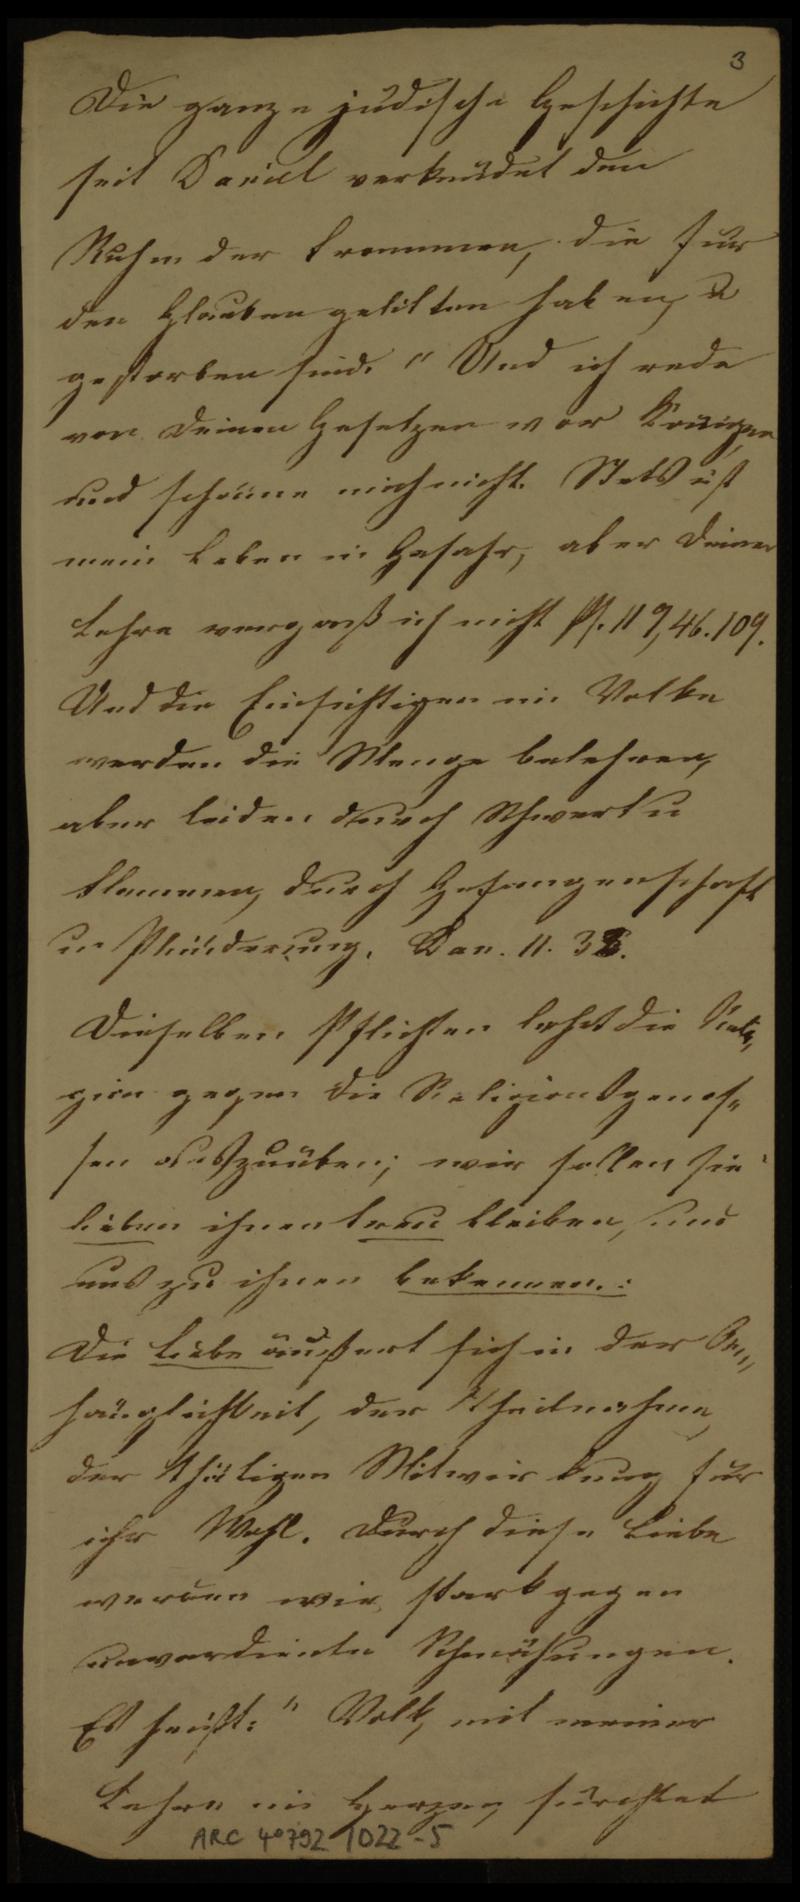 3
Die ganze jüdische Geschichte
seit Daniel verkündet den
Ruhm der Frommen, die für
den Glauben gelitten haben, u
gestorben sind. " Und ich rede
von Deinen Gesetzen vor Königen,
und schäme mich nicht. Stets ist
mein Leben in Gefahr, aber Deiner
Lehre vergaß ich nicht Ps. 119,46.109.
Und die Einsichtigen im Volke
werden die Menge belehren,
aber leiden durch Schwert u
Flammen, durch Gefangenschaft
u Plünderung. Dan. 11. 33.
Dieselben Pflichten lehrt die Reli„
gion gegen die Religionsgenos„
sen auszuüben; wir sollen sie
lieben ihnen treu bleiben, und
uns zu ihnen bekennen.:
Die Liebe äußert sich in der An„
hänglichkeit, der Theilnahme,
der thätigen Mitwirkung für
ihr Wohl. Durch diese Liebe
werden wir stark gegen
unverdiente Schmähungen.
Es heißt: " Volk, mit meiner
Lehre im Herzen, fürchtet
ARC 4°792 1022-5